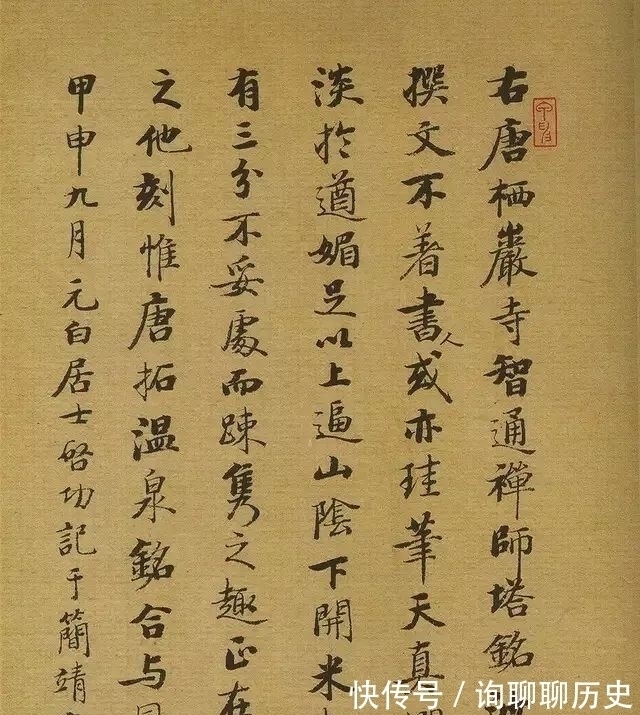 右唐栖巖寺智通禪師塔銘
撰文不著書人或亦珪筆天真
淡於遒媚足以上逼山陰下開米
有三分不妥處而踈隽之趣正在
之他刻惟唐拓温泉銘合与
甲申九月元白居士啓功記于簡靖
快传号 / 询聊聊历史